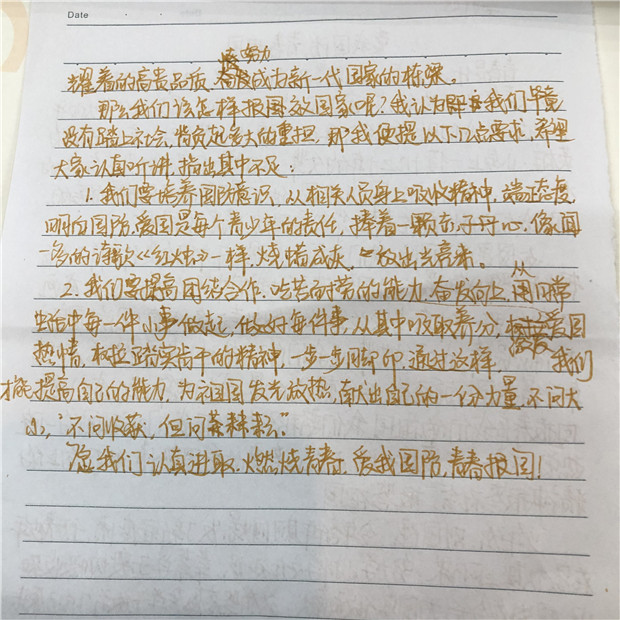 Date
应努力
耀着的高贵品质、奋发成为新一代国家的栋梁。
那么我们该怎样报国效国家呢?我认为我们毕竟
没有踏上社会,肩负起多大的重担,那我便提以下几点要求,希望
大家认真听讲,指出其中不足:
1. 我们要培养国防意识,从相关人员身上吸收精神,端正态度,
明向国防,爱国是每个青少年的责任,捧着一颗赤子丹心,像闻
一多的诗歌《红烛》一样,烧惜成灰、放出光亮来。
从
2. 我们要提高团结合作、吃苦耐劳的能力,奋发向上,用日常
生活中每一件小事做起,做好每件事,从其中吸取养分,爱国
热情,树立踏实肯干的精神,一步一脚印,通过这样,我们
才能提高自己的能力,为祖国发光放热,献出自己的一份力量,不问大
小,"不问收获,但问耕耘"
愿我们认真进取,燃烧青春,爱我国防,青春报国!